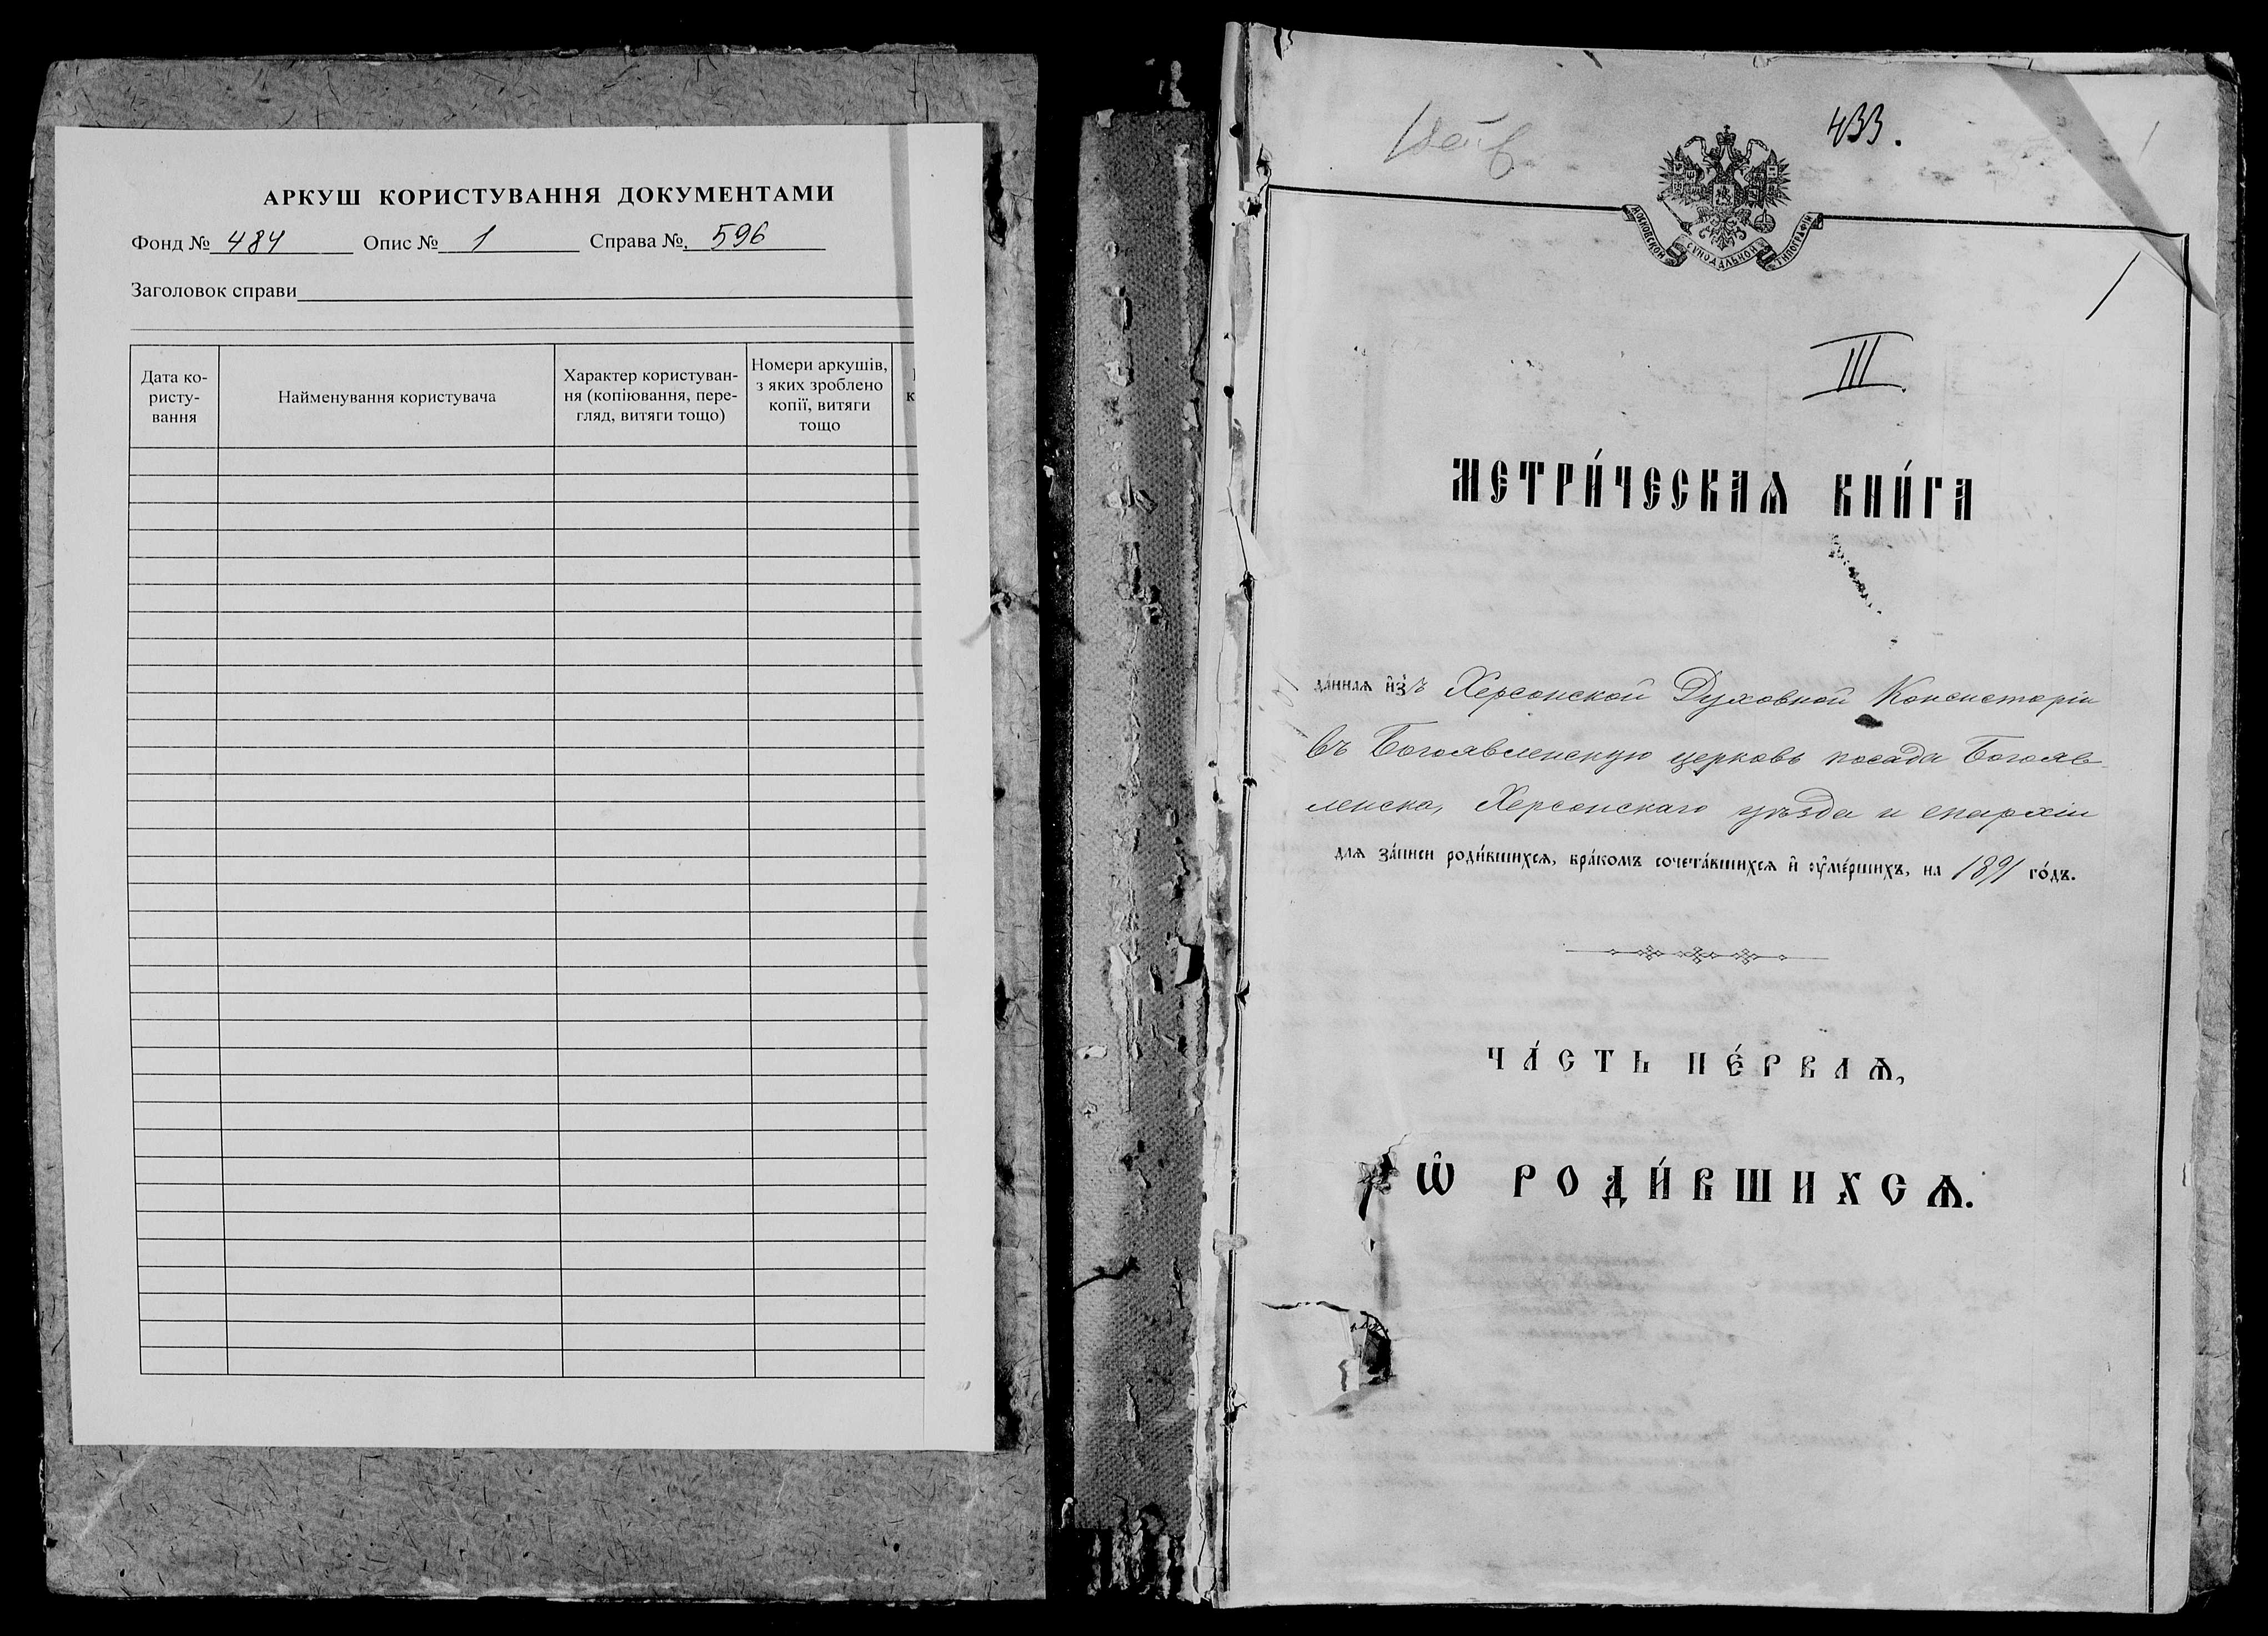 АРКУШ КОРИСТУВАННЯ ДОКУМЕНТАМИ
Фонд № 484 Опис № 1 Справа № 596
Заголовок справи
Дата ко-
ристу-
вання
Найменування користувача
Характер користуван-
ня (копіювання, пере-
гляд, витяги тощо)
Номери аркушів,
з яких зроблено
копії, витяги
тощо
433.
МОСКОВСКОЙ СУНОДАЛЬНОЙ ТИПОГРАФІИ
1
III
МЕТРИ́ЧЕСКАѦ КНИ́ГА
да́ннаѧ и҆з̾ъ Херсонской Духовной Консисторіи
въ Богоявленскую церковь посада Богояв-
ленска, Херсонскаго уѣзда и епархіи
длѧ за́писи роди́вшихсѧ, бра́комъ сочета́вшихсѧ и҆ ᲂу҆ме́ршихъ, на 1891 го́дъ.
ЧА́СТЬ ПЕ́РВАѦ,
Ѡ҆ РОДИ́ВШИХСѦ.